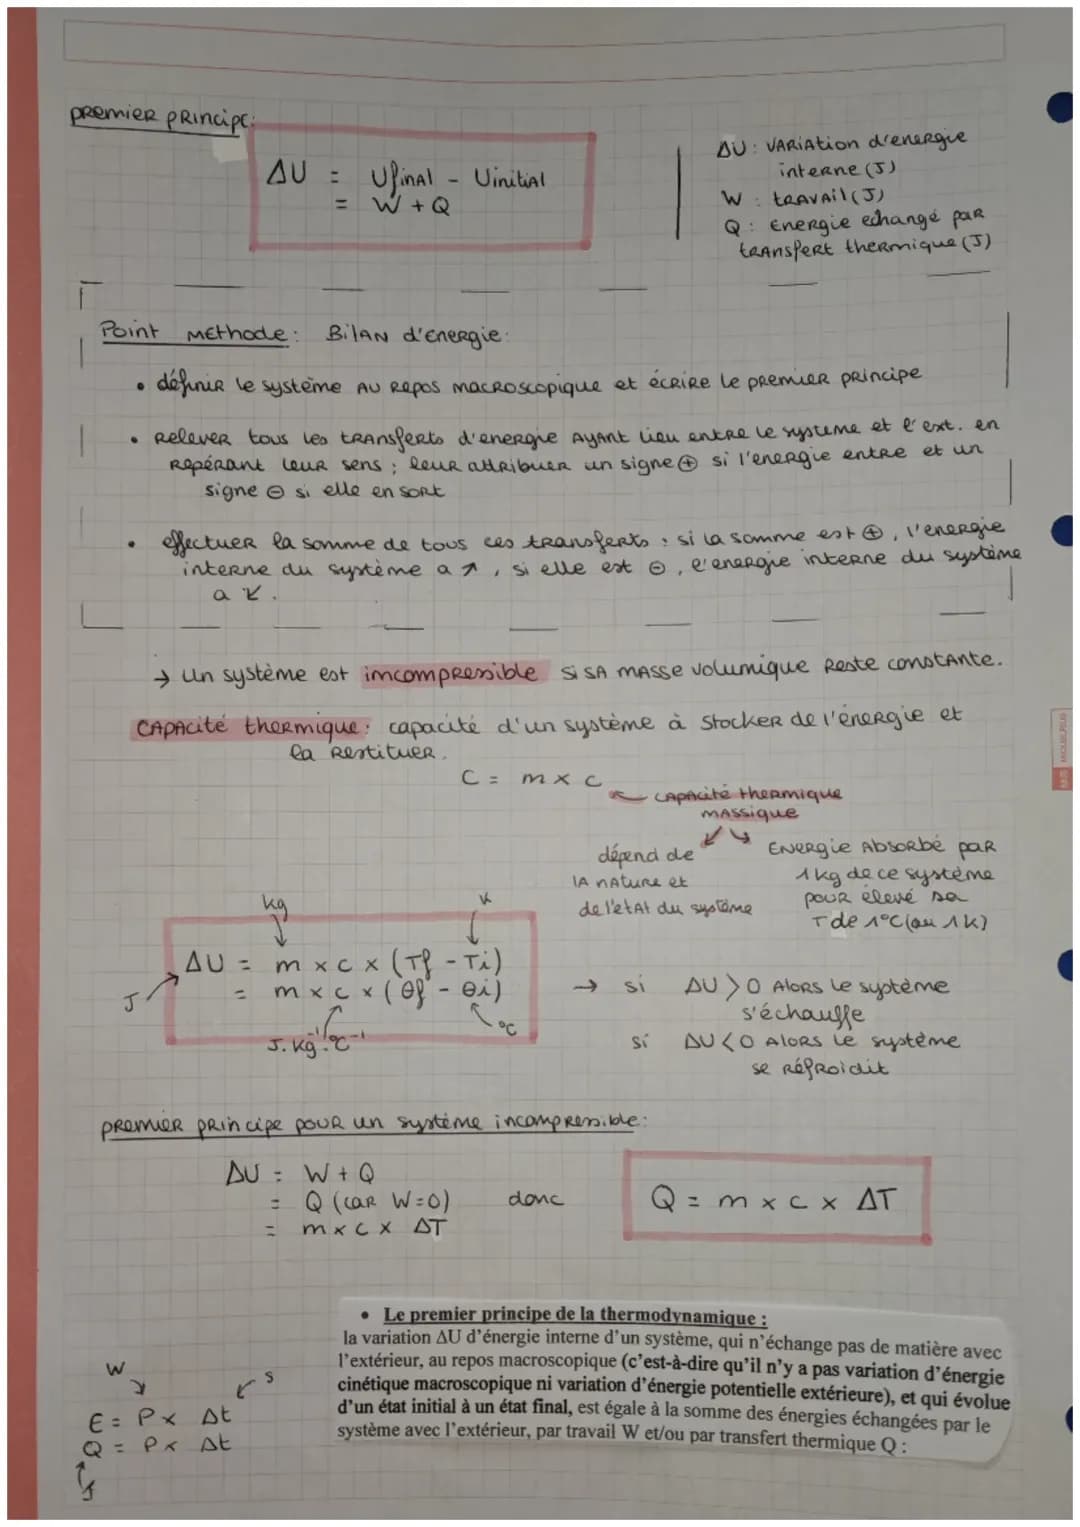 premier principe:
ΔU = Ufinal - Uinitial
= W + Q
ΔU : variation d'energie
interne (J)
W : travail (J)
Q : Energie echangé par
transfert thermique (J)
Point methode : Bilan d'energie :
• définir le système au repos macroscopique et écrire le premier principe
• Relever tous les transferts d'energie ayant lieu entre le système et l'ext. en
repérant leur sens ; leur attribuer un signe ⊕ si l'energie entre et un
signe ⊖ si elle en sort
• effectuer la somme de tous ces transferts : si la somme est ⊕, l'energie
interne du système a ↗, si elle est ⊖, l'energie interne du système
a ↙.
→ Un système est imcompressible si sa masse volumique reste constante.
Capacité thermique : capacité d'un système à stocker de l'énergie et
la restituer.
C = m × c
capacité thermique
massique
dépend de
la nature et
de l'état du système
Energie absorbé par
1 kg de ce système
pour élevé sa
T de 1°C (ou 1 K)
kg
K
ΔU = m × c × (Tf - Ti)
= m × c × (θf - θi)
J
J.kg⁻¹.°C⁻¹
°C
→ si ΔU > 0 Alors le système
s'échauffe
si ΔU < 0 Alors le système
se réfroidit
premier principe pour un système incompressible :
ΔU = W + Q
= Q (car W=0) donc
= m × c × ΔT
Q = m × c × ΔT
• Le premier principe de la thermodynamique :
la variation ΔU d'énergie interne d'un système, qui n'échange pas de matière avec
l'extérieur, au repos macroscopique (c'est-à-dire qu'il n'y a pas variation d'énergie
cinétique macroscopique ni variation d'énergie potentielle extérieure), et qui évolue
d'un état initial à un état final, est égale à la somme des énergies échangées par le
système avec l'extérieur, par travail W et/ou par transfert thermique Q :
W
s
E = P × Δt
Q = P × Δt
J